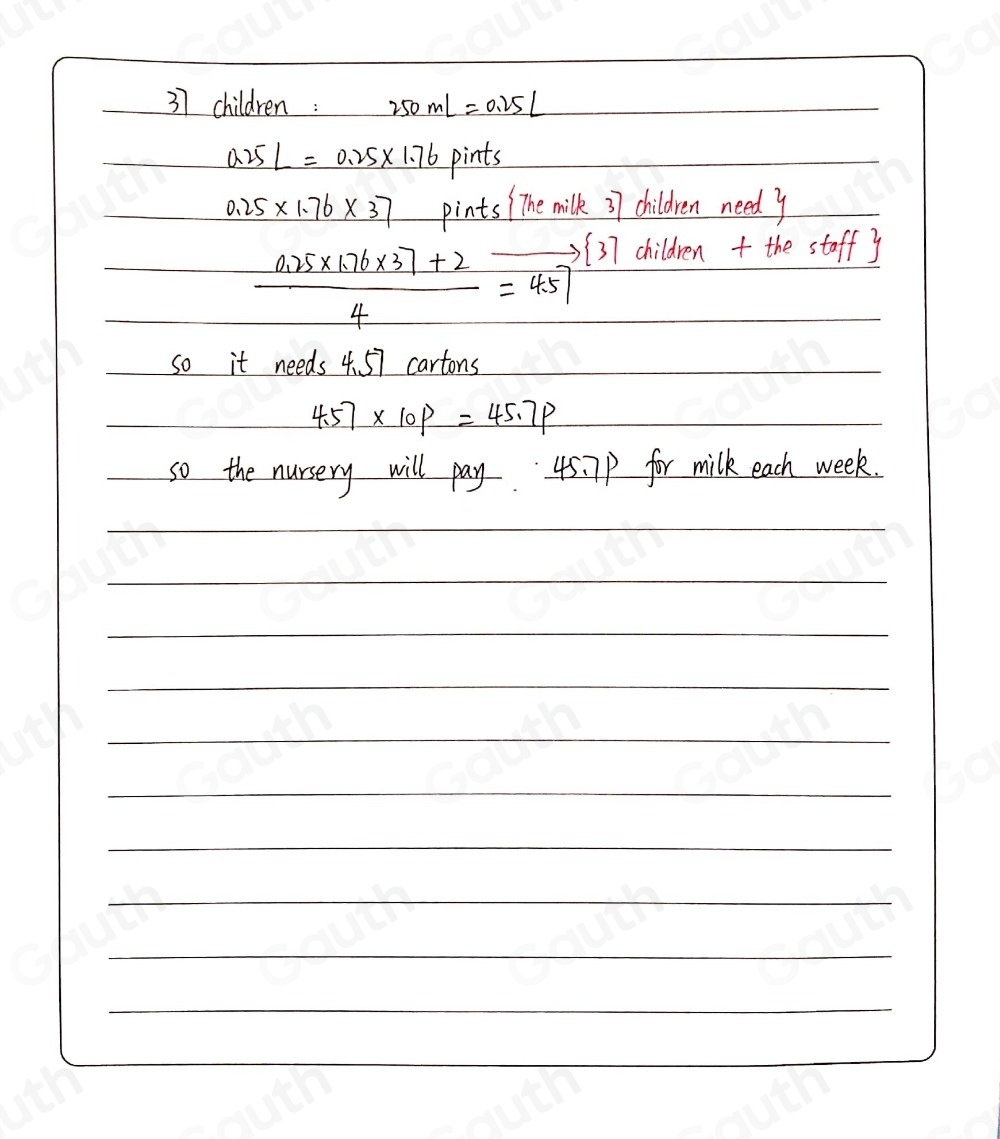 37 children : 250 mL = 0.25 L
0.25 L = 0.25 × 1.76 pints
0.25 × 1.76 × 37 pints {The milk 37 children need}
0.25 × 1.76 × 37 + 2 → {37 children + the staff}
4 = 4.57
so it needs 4.57 cartons
4.57 × 10P = 45.7P
so the nursery will pay 45.7P for milk each week.
Gauth